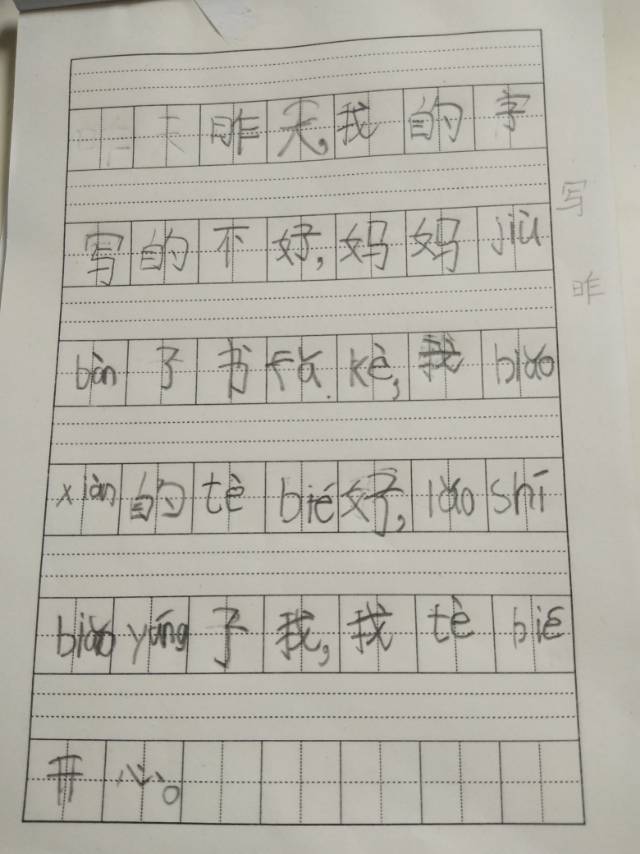 昨天,我的字
写的不好,妈妈jiù
bàn了书fǎ kè,我biǎo
xiàn的tè bié好,lǎo shī
biǎo yáng了我,我tè bié
开心。
写
昨